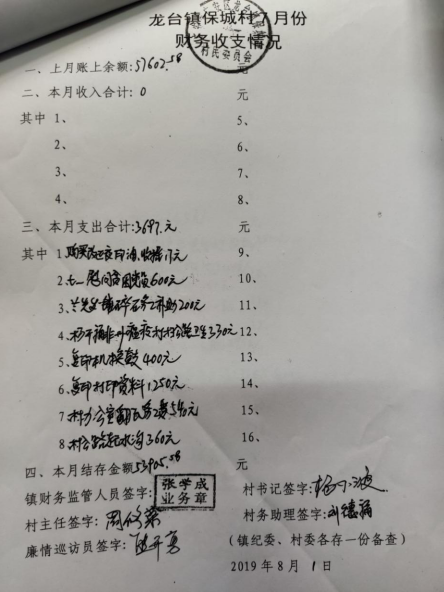 龙台镇保城村7月份
财务收支情况
村民委员会
一、上月账上余额:57602.58 元
二、本月收入合计:0 元
其中 1、 5、
2、 6、
3、 7、
4、 8、
三、本月支出合计:3697.元 元
其中 1 9、
2 七一慰问贫困党员600元 10、
3、 补助200元 11、
4、 330元 12、
5、复印机换鼓400元 13、
6、复印村印资料1250元 14、
7、村办公室翻瓦 540元 15、
8、村公路 水沟360元 16、
四、本月结存金额53905.58 元
镇财务监管人员签字: 张学成
业务章
村书记签字:杨
村主任签字:周
村务助理签字:
廉情巡访员签字:
(镇纪委、村委各存一份备查)
2019年8月1日